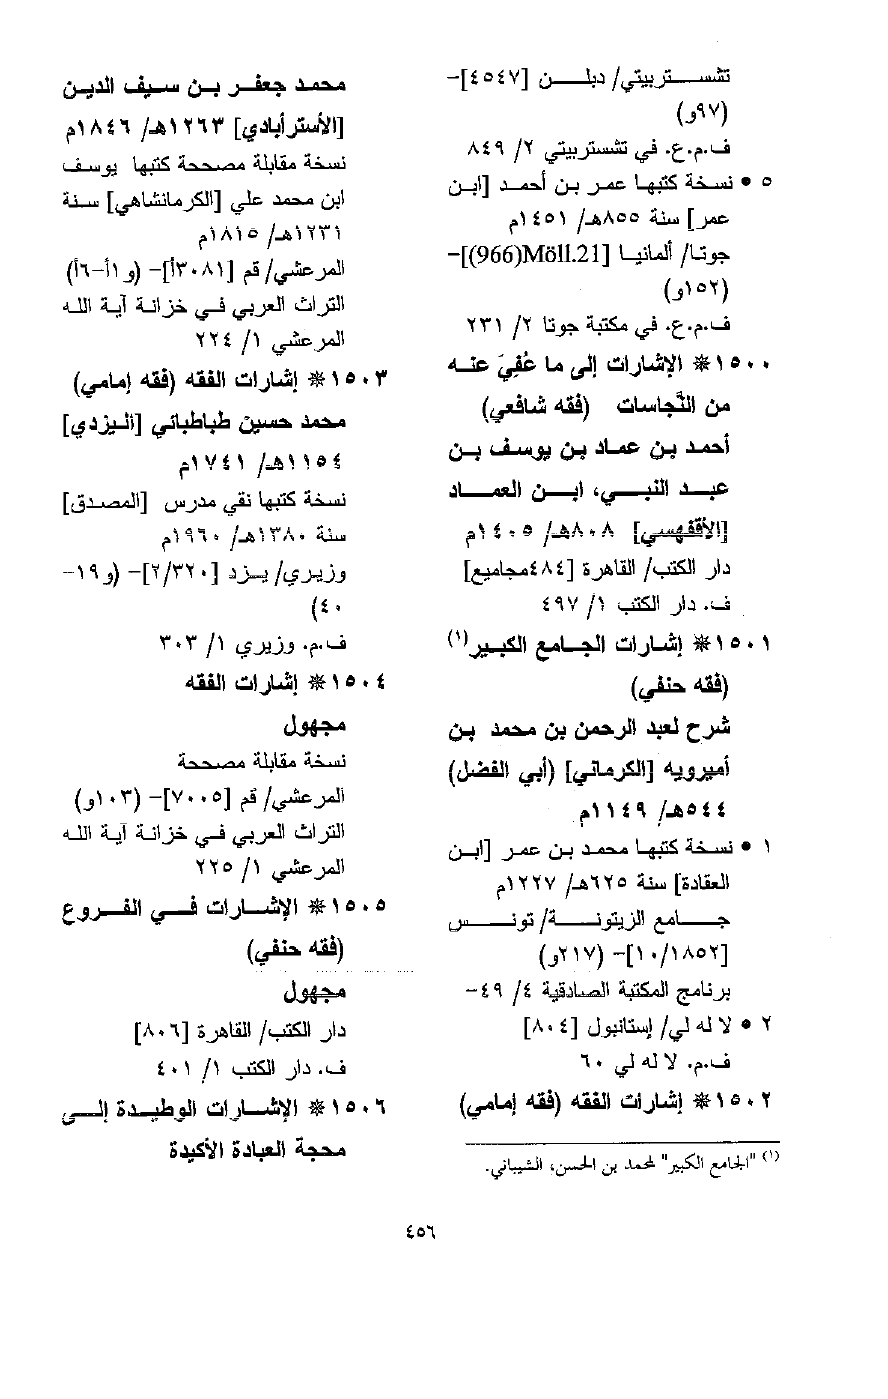 تشستربيتي/ دبلن [٤٥٤٧]-
(٩٧و)
ف.م.ع. في تشستربيتي ٢/ ٨٤٩
٥ • نسخة كتبها عمر بن أحمد [ابن
عمر] سنة ٨٥٥هـ/ ١٤٥١م
جوتا/ ألمانيا [Möll.21(966)]-
(١٥٢و)
ف.م.ع. في مكتبة جوتا ٢/ ٢٣١
١٥٠٠ * الإشارات إلى ما عُفِيَ عنه
من النَّجاسات (فقه شافعي)
أحمد بن عماد بن يوسف بن
عبد النبي، ابن العماد
[الأقفهسي] ٨٠٨هـ/ ١٤٠٥م
دار الكتب/ القاهرة [٤٨٤مجاميع]
ف. دار الكتب ١/ ٤٩٧
١٥٠١ * إشارات الجامع الكبير(١)
(فقه حنفي)
شرح لعبد الرحمن بن محمد بن
أميرويه [الكرماني] (أبي الفضل)
٥٤٤هـ/ ١١٤٩م
١ • نسخة كتبها محمد بن عمر [ابن
العقادة] سنة ٦٢٥هـ/ ١٢٢٧م
جامع الزيتونة/ تونس
[١٠/١٨٥٢]- (٢١٧و)
برنامج المكتبة الصادقية ٤/ ٤٩-
٢ • لا له لي/ إستانبول [٨٠٤]
ف.م. لا له لي ٦٠
١٥٠٢ * إشارات الفقه (فقه إمامي)
(١) "الجامع الكبير" لمحمد بن الحسن، الشيباني.
محمد جعفر بن سيف الدين
[الأسترأبادي] ١٢٦٣هـ/ ١٨٤٦م
نسخة مقابلة مصححة كتبها يوسف
ابن محمد علي [الكرمانشاهي] سنة
١٢٣١هـ/ ١٨١٥م
المرعشي/ قم [٣٠٨١أ]- (و١أ-٦أ)
التراث العربي في خزانة آية الله
المرعشي ١/ ٢٢٤
١٥٠٣ * إشارات الفقه (فقه إمامي)
محمد حسين طباطبائي [اليزدي]
١١٥٤هـ/ ١٧٤١م
نسخة كتبها نقي مدرس [المصدق]
سنة ١٣٨٠هـ/ ١٩٦٠م
وزيري/ يزد [٢/٣٢٠]- (و١٩-
٤٠)
ف.م. وزيري ١/ ٣٠٣
١٥٠٤ * إشارات الفقه
مجهول
نسخة مقابلة مصححة
المرعشي/ قم [٧٠٠٥]- (١٠٣و)
التراث العربي في خزانة آية الله
المرعشي ١/ ٢٢٥
١٥٠٥ * الإشارات في الفروع
(فقه حنفي)
مجهول
دار الكتب/ القاهرة [٨٠٦]
ف. دار الكتب ١/ ٤٠١
١٥٠٦ * الإشارات الوطيدة إلى
محجة العبادة الأكيدة
٤٥٦